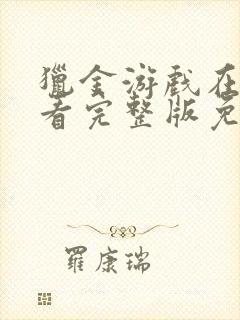 獵金游戲在
看完整版免
羅康瑞